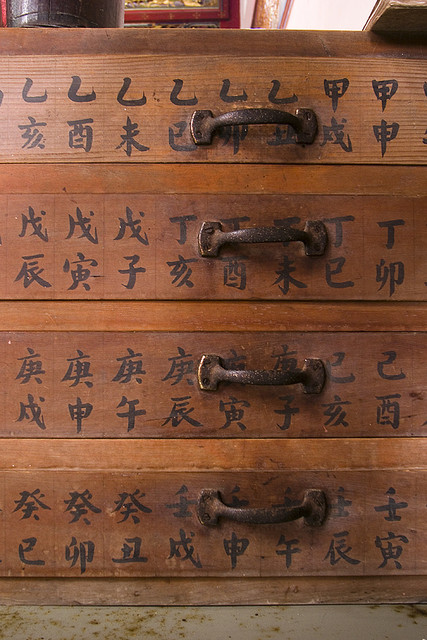 甲申
甲戌
乙丑
乙卯
乙巳
乙未
乙酉
乙亥
丁卯
丁巳
丁未
丁酉
丁亥
戊子
戊寅
戊辰
己酉
己亥
庚子
庚寅
庚辰
庚午
庚申
庚戌
壬寅
壬辰
壬午
壬申
壬戌
癸丑
癸卯
癸巳